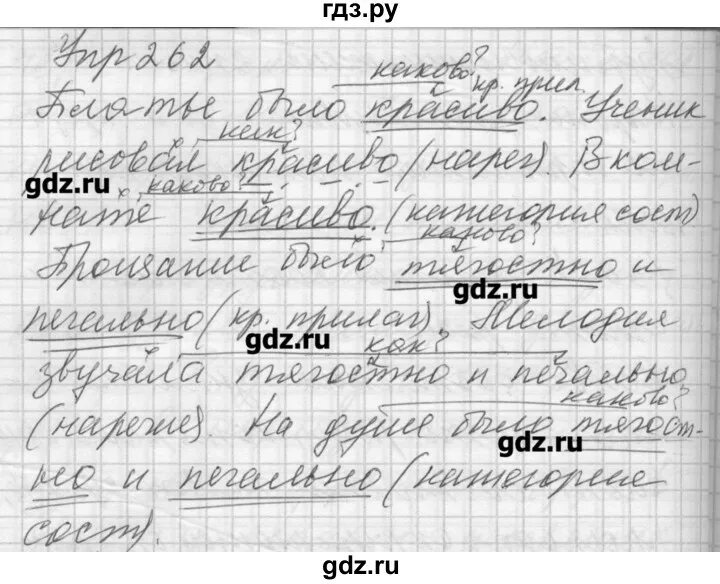 гдз.ру
Упр 262
каково?
кр. прил.
Платье было красиво. Ученик
как?
рисовал красиво (нареч). В ком-
gdz.ru
каково?
нате красиво. (категория сост)
каково?
Прощание было тягостно и
gdz.ru
печально (кр. прилаг). Мелодия
gdz.ru
как?
звучала тягостно и печально
каково?
(наречие). На душе было тягост-
gdz.ru
но и печально (категория
сост).
gdz.ru